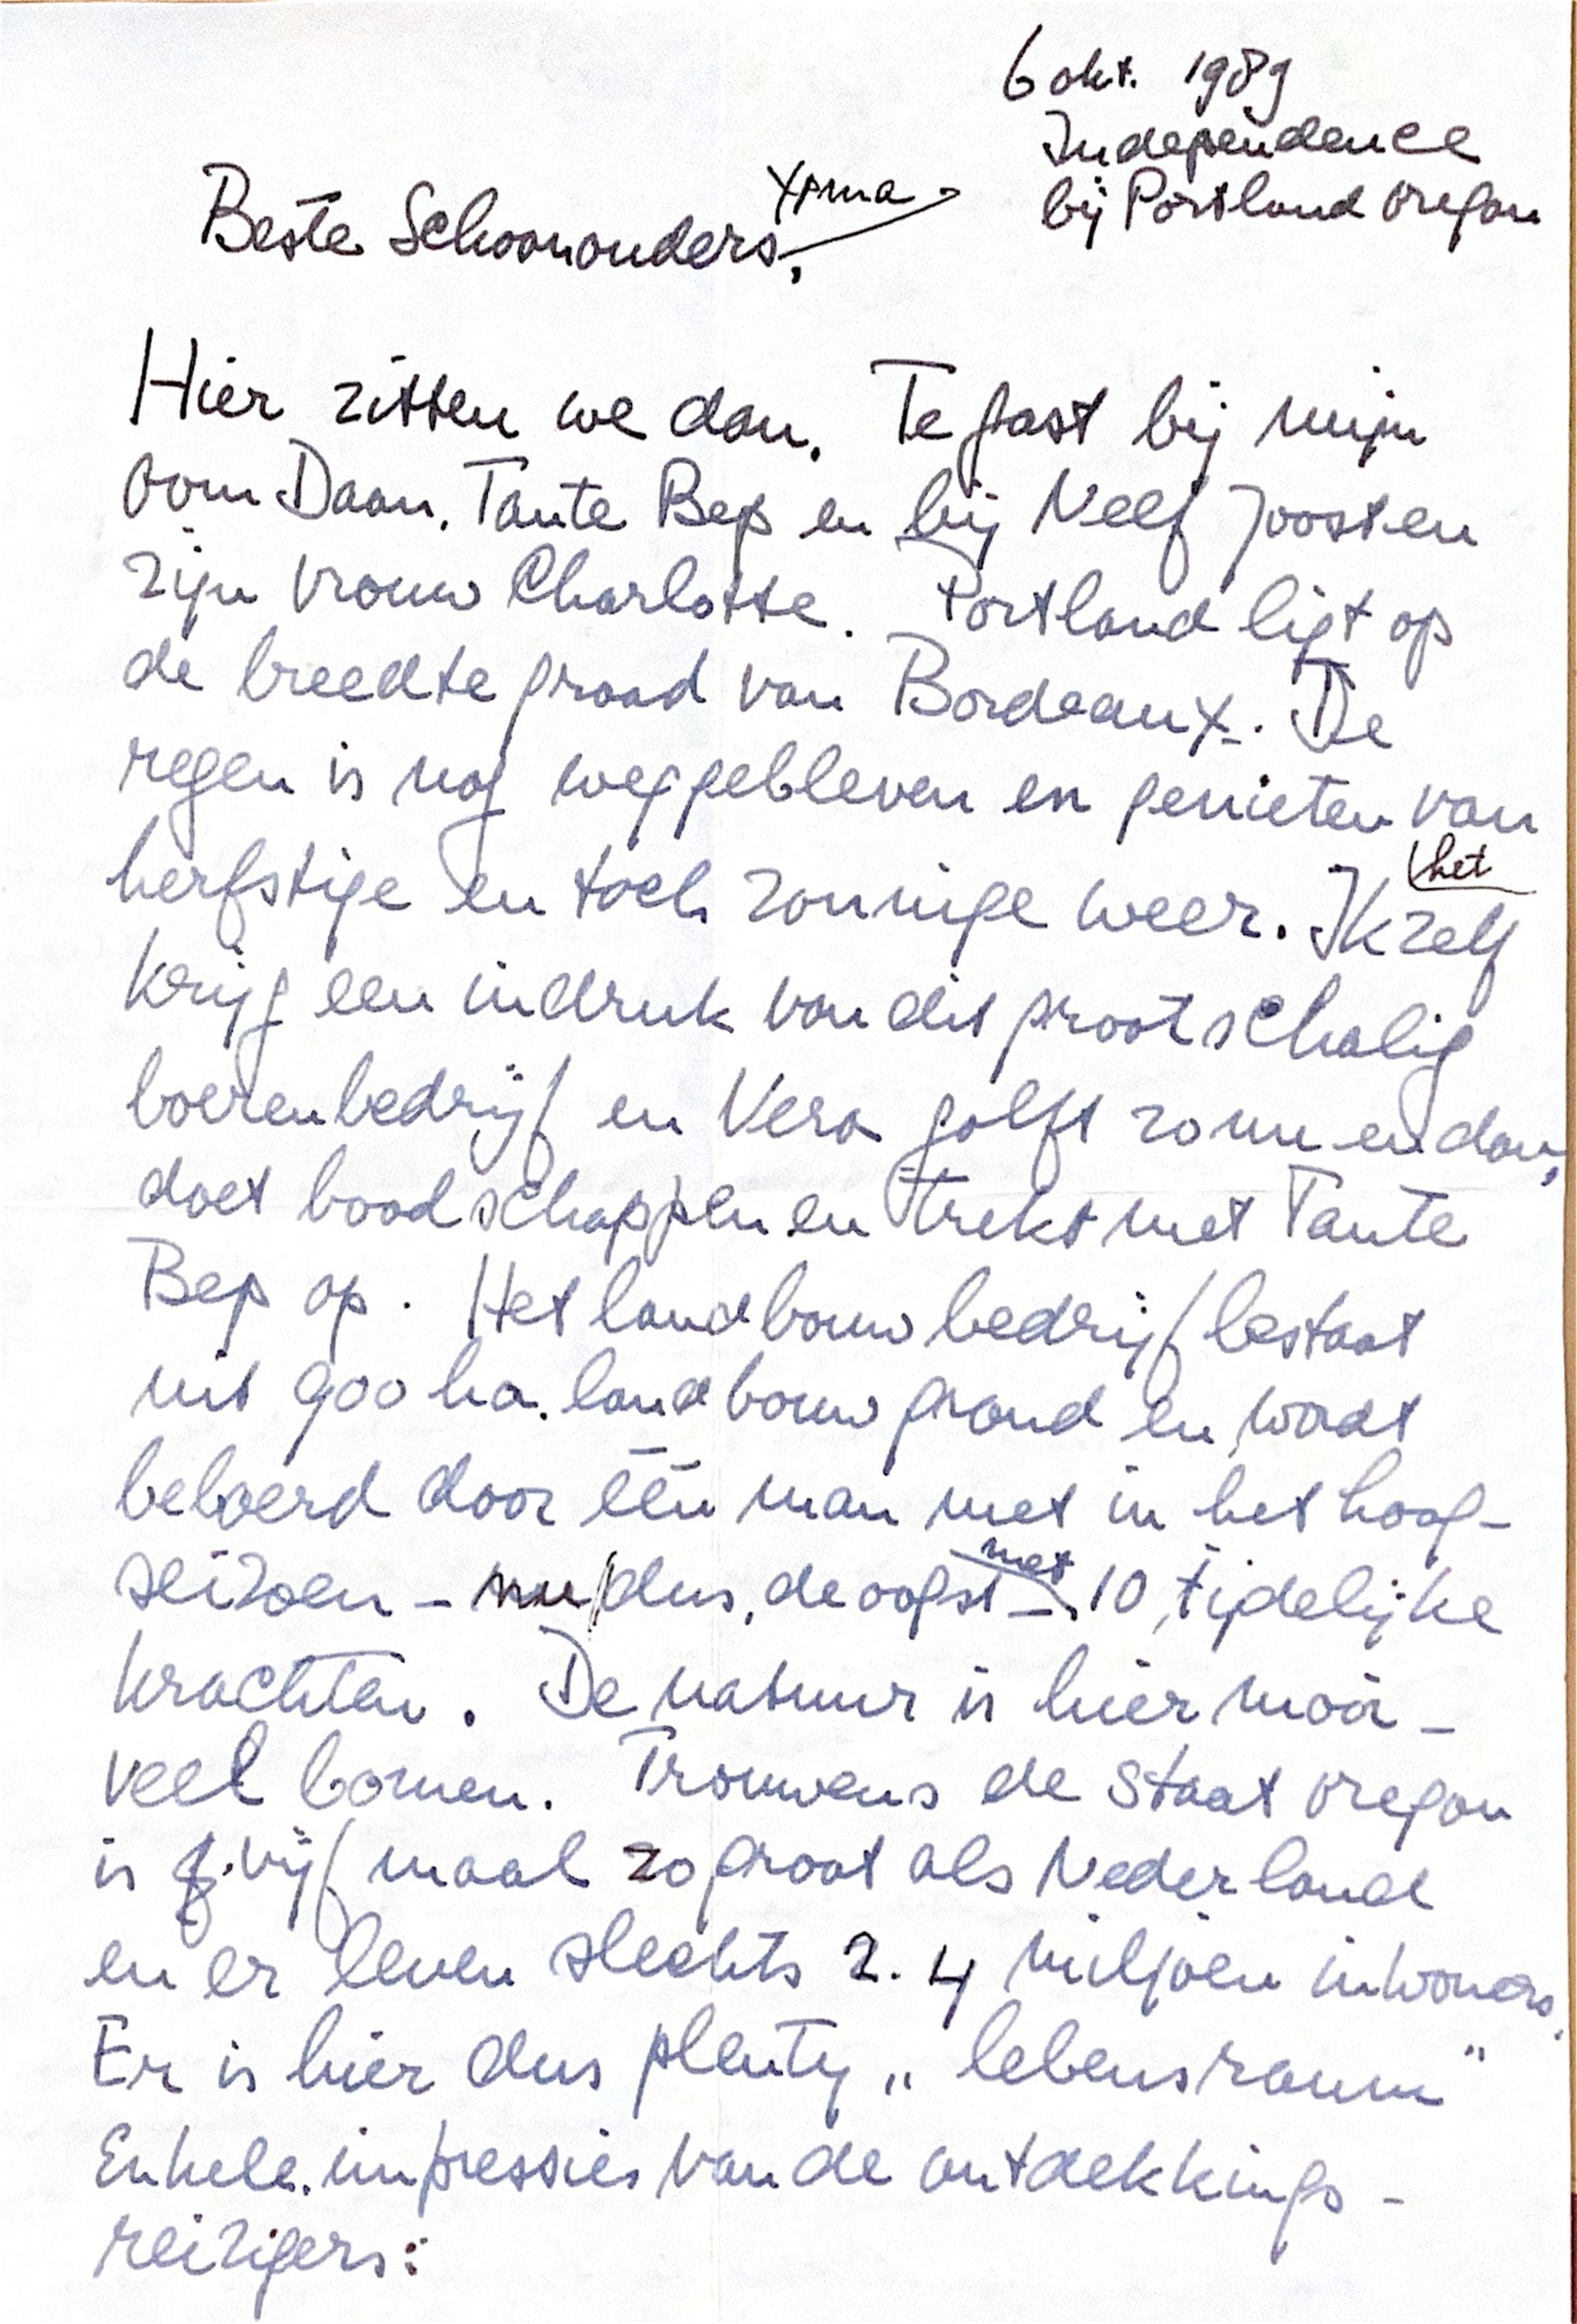 6 okt. 1989
Independence
bij Portland Oregon
Ypma
Beste Schoonouders,
Hier zitten we dan. Te gast bij mijn
oom Daan. Tante Bep en bij Neef Joost en
zijn vrouw Charlotte. Portland ligt op
de breedte graad van Bordeaux. De
regen is nog weggebleven en genieten van
het
herfstige en toch zonnige weer. Ik zelf
krijg een indruk van dit grootschalig
boerenbedrijf en Vera golft zo nu en dan,
doet boodschappen en trekt met Tante
Bep op. Het landbouw bedrijf bestaat
uit 900 ha. landbouw grond en wordt
beboerd door één man met in het hoog-
seizoen - nu dus, de oogst - met 10 tijdelijke
krachten. De natuur is hier mooi -
veel bomen. Trouwens de staat Oregon
is vijf maal zo groot als Nederland
en er leven slechts 2.4 miljoen inwoners.
Er is hier dus plenty „ lebensraum "
Enkele impressies van de ontdekkings -
reizigers: